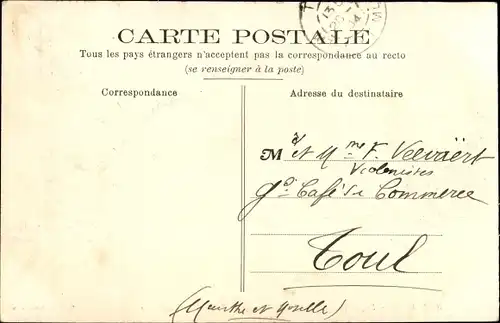 CARTE POSTALE
Tous les pays étrangers n'acceptent pas la correspondance au recto
(se renseigner à la poste)
Correspondance
Adresse du destinataire
M r et Mme F. Veevaërt
Violonistes
Gd Café du Commerce
Toul
(Meurthe et Moselle)